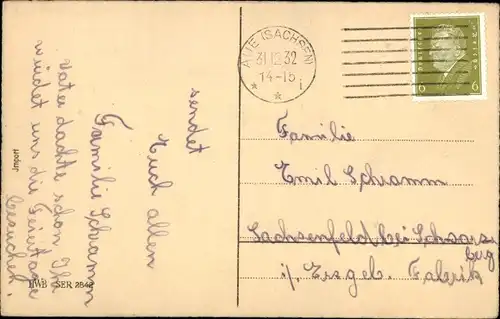 sendet
Euch allen
Familie Schramm
Vater dachte schon Ihr
würdet uns die Feiertage
besuchen.
Import
HWB SER 2842
AUE (SACHSEN)
31.12.32
14-15
* * i
6 6
Familie
Emil Schramm
Sachsenfeld bei Schwarz
berg
i/. Erzgeb. Fabrik